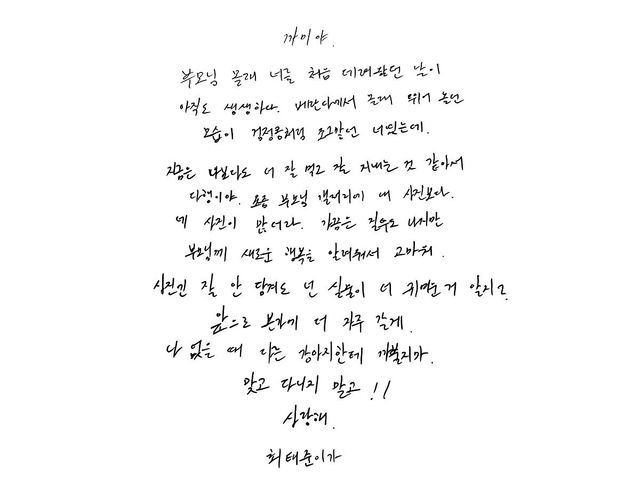 까미야.
부모님 몰래 너를 처음 데려왔던 날이
아직도 생생하다. 베란다에서 몰래 뛰어 놀던
모습이 검정콩처럼 조그맣던 너였는데.
지금은 나보다도 더 잘 먹고 잘 지내는 것 같아서
다행이야. 요즘 부모님 갤러리에 내 사진보다.
네 사진이 많더라. 가끔은 질투도 나지만
부모님께 새로운 행복을 알려줘서 고마워.
사진긴 잘 안 담겨도 넌 실물이 더 귀여운거 알지?
앞으로 본가에 더 자주 갈게.
나 없을 때 다른 강아지한테 까불다가.
맞고 다니지 말고!!
사랑해.
최태준이가